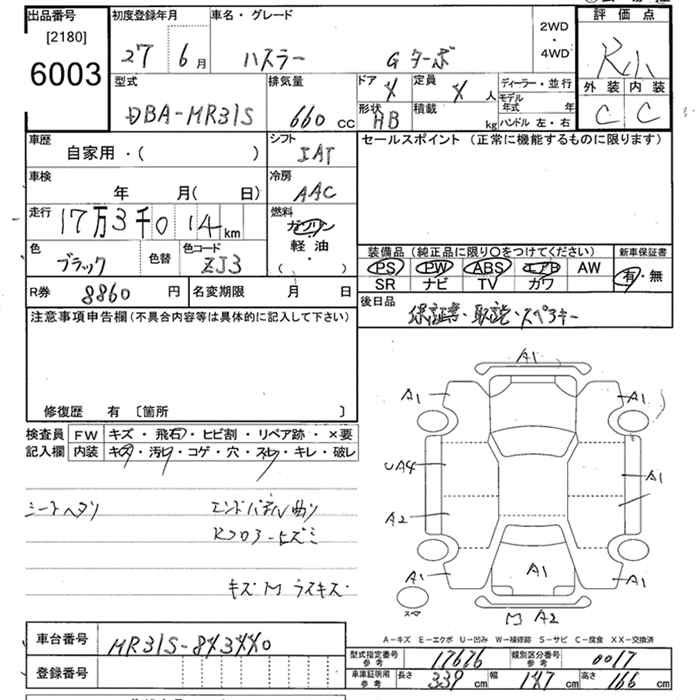 出品番号
[2180]
6003
初度登録年月
27 6月
車名・グレード
ハスラー Gターボ
2WD
・
4WD
評価点
外装 内装
C C
型式
DBA-MR31S
排気量
660 CC
ドア 4
定員 4 人
形状 HB
積載 kg
ディーラー・並行
モデル年式 年
ハンドル 左・右
車歴
自家用・( )
シフト
IAT
セールスポイント (正常に機能するものに限ります)
車検
年 月( 日)
冷房
AAC
走行
17万3千014km
燃料
ガソリン
軽油
・
( )
色
ブラック
色替
色コード
ZJ3
装備品 (純正品に限り〇をつけてください)
PS PW ABS エアB AW
SR ナビ TV カワ
新車保証書
有・無
R券 8860 円
名変期限 月 日
後日品
保証書・取説・スペアキー
注意事項申告欄(不具合内容等は具体的に記入して下さい)
修復歴 有 〔箇所 〕
検査員
記入欄
FW キズ・飛石・ヒビ割・リペア跡・×要
内装 キズ・汚レ・コゲ・穴・スレ・キレ・破レ
シートヘタリ
エンドパネル曲リ
キズM ラスキズ
A1
A1 A1
UA4 A1
A2
A1 A1 A1
スペア
M A2
A-キズ E-エクボ U-凹み W-補修跡 S-サビ C-腐食 XX-交換済
車台番号
MR31S-843440
登録番号
型式指定番号
参考
17676
類別区分番号
参考
0017
車庫証明用
参考
長さ 339 cm
幅 147 cm
高さ 166 cm